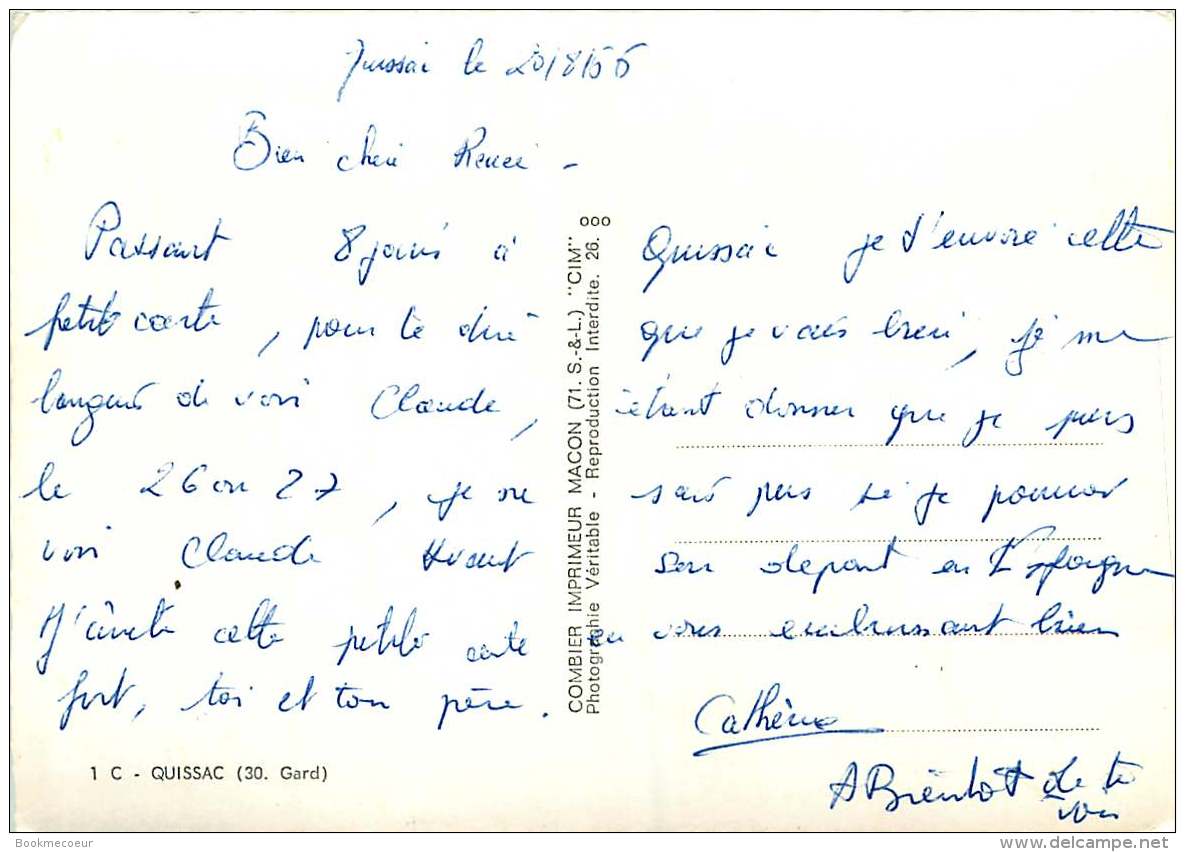 le 20/8/
Bien cheri Renée -
Passant 8 jours à Quissac je t'envoie cette
petite carte, pour te dire que je vais bien, je me
langui de voir Claude, étant donner que je pars
le 26 ou 27, je ne sais pas si je pourrer
voir Claude Avant son depart en Espagne
J'arrete cette petite carte en vous embrassant bien
fort, toi et ton père.
Catherine
A Bientôt de te
voir
COMBIER IMPRIMEUR MACON (71. S.-&-L.) "CIM"
Photographie Véritable - Reproduction Interdite. 26.
1 C - QUISSAC (30. Gard)
Bookmecoeur
delcampe.net